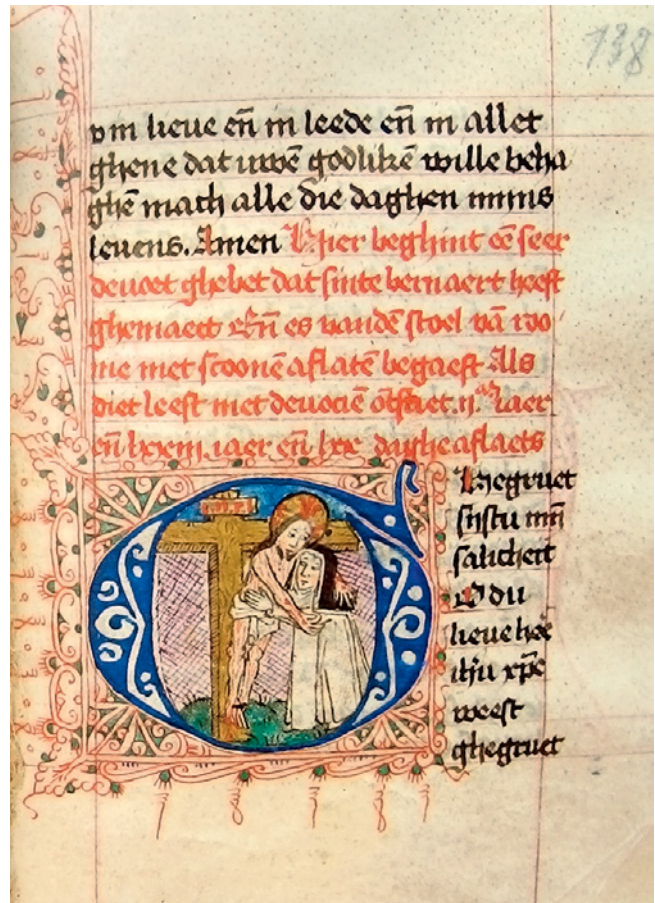 138
vm lieue en̄ in leede en̄ in allet
ghene dat uwē godlikē wille beha
ghē mach alle die daghen mijns
leuens. Amen Hier beghint eē seer
deuoet ghebet dat sinte bernaert heeft
ghemaect En̄ es vanden stoel vā roo
me met scoonē aflatē begaeft Als
diet leest met deuociē
iaer en̄ lxx daghe aflaets
Ghegruet
sijstu mijn
salicheit
O du
lieue hee
ihū xp̄e
weest
ghegruet